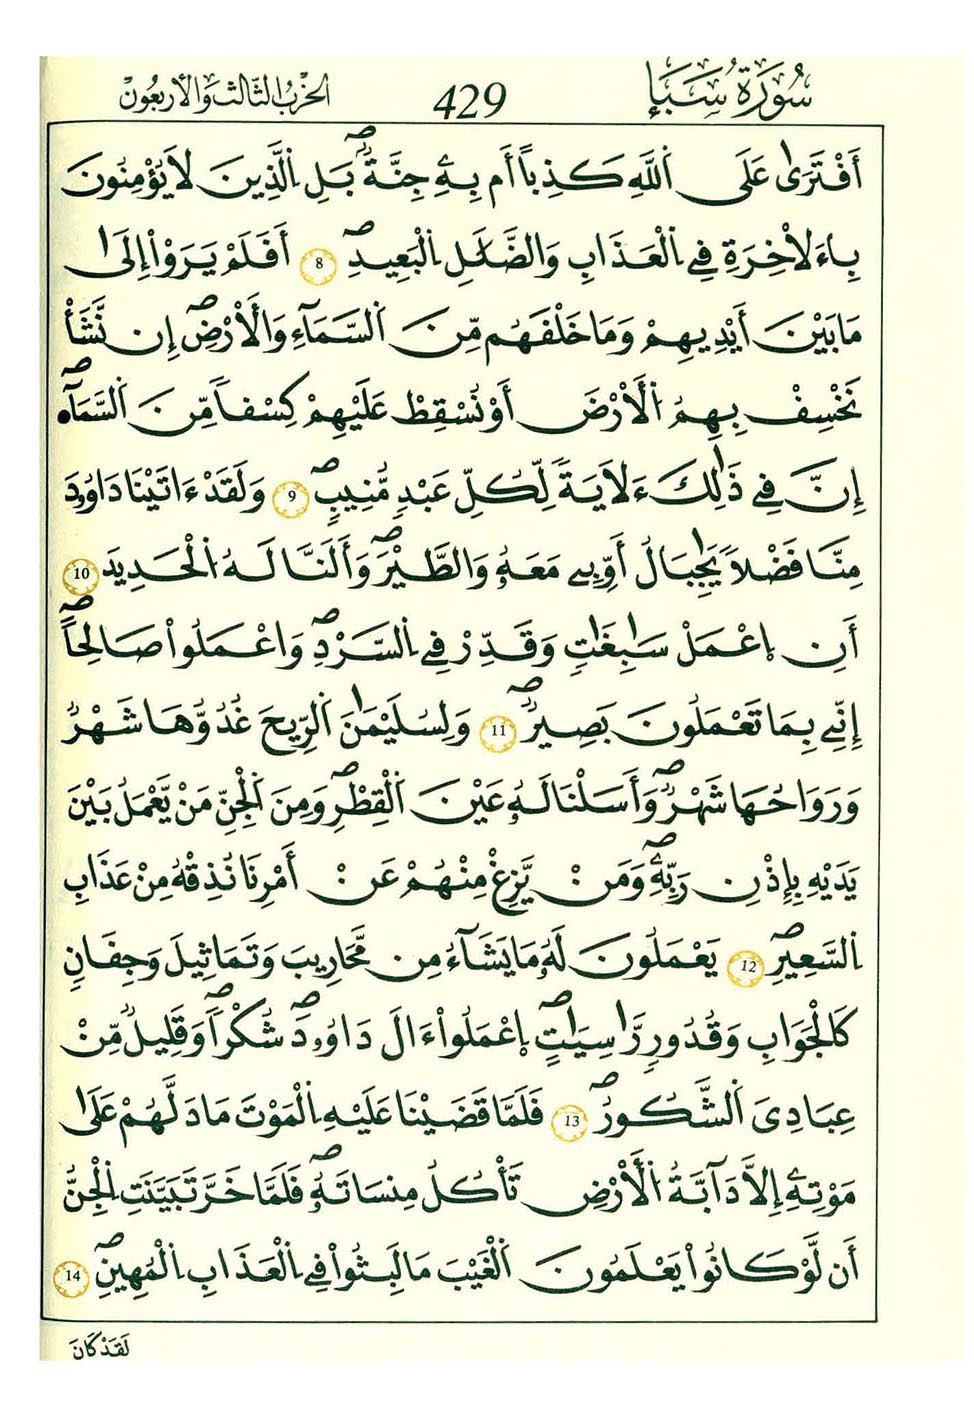 سُورَةُ سَبَإٍ
429
الحزب الثالث والأربعون
أَفْتَرَىٰ عَلَى اَ۬للَّهِ كَذِباً أَم بِهِۦ جِنَّةٌۖ بَلِ اِ۬لَّذِينَ لَا يُؤْمِنُونَ
بِاءَلَاخِرَةِ فِے اِ۬لْعَذَابِ وَالضَّلَٰلِ اِ۬لْبَعِيدِۖ 8 أَفَلَمْ يَرَوْاْ إِلَىٰ
مَا بَيْنَ أَيْدِيهِمْ وَمَا خَلْفَهُم مِّنَ اَ۬لسَّمَآءِ وَالَارْضِۖ إِن نَّشَأْ
نَخْسِفْ بِهِمُ اُ۬لَارْضَ أَوْ نُسْقِطْ عَلَيْهِمْ كِسْفاً مِّنَ اَ۬لسَّمَآءِۖ
إِنَّ فِے ذَٰلِكَ ءَلَايَةٗ لِّكُلِّ عَبْدٖ مُّنِيبٖۖ 9 وَلَقَدْ ءَاتَيْنَا دَاوُۥدَ
مِنَّا فَضْلاً يَٰجِبَالُ أَوِّبِے مَعَهُۥ وَالطَّيْرَۖ وَأَلَنَّا لَهُ اُ۬لْحَدِيدَ 10
أَنِ اِ۪عْمَلْ سَٰبِغَٰتٖ وَقَدِّرْ فِے اِ۬لسَّرْدِۖ وَاعْمَلُواْ صَالِحاًۖ
إِنِّے بِمَا تَعْمَلُونَ بَصِيرٌۖ 11 وَلِسُلَيْمَٰنَ اَ۬لرِّيحَ غُدُوُّهَا شَهْرٌ
وَرَوَاحُهَا شَهْرٌۖ وَأَسَلْنَا لَهُۥ عَيْنَ اَ۬لْقِطْرِۖ وَمِنَ اَ۬لْجِنِّ مَنْ يَّعْمَلُ بَيْنَ
يَدَيْهِ بِإِذْنِ رَبِّهِۦۖ وَمَنْ يَّزِغْ مِنْهُمْ عَنْ أَمْرِنَا نُذِقْهُ مِنْ عَذَابِ
اِ۬لسَّعِيرِۖ 12 يَعْمَلُونَ لَهُۥ مَا يَشَآءُ مِن مَّحَارِيبَ وَتَمَاثِيلَ وَجِفَانٖ
كَالْجَوَابِ وَقُدُورٖ رَّاسِيَٰتٍۖ اِ۪عْمَلُواْ ءَالَ دَاوُۥدَۖ شُكْراًۖ وَقَلِيلٌ مِّنْ
عِبَادِيَ اَ۬لشَّكُورُۖ 13 فَلَمَّا قَضَيْنَا عَلَيْهِ اِ۬لْمَوْتَ مَا دَلَّهُمْ عَلَىٰ
مَوْتِهِۦ إِلَّا دَآبَّةُ اُ۬لَارْضِ تَأْكُلُ مِنسَاتَهُۥۖ فَلَمَّا خَرَّ تَبَيَّنَتِ اِ۬لْجِنُّ
أَن لَّوْ كَانُواْ يَعْلَمُونَ اَ۬لْغَيْبَ مَا لَبِثُواْ فِے اِ۬لْعَذَابِ اِ۬لْمُهِينِۖ 14
لَقَدْ كَانَ